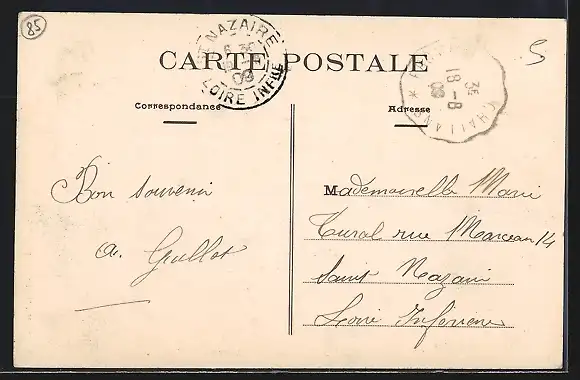 85
5
CARTE POSTALE
Sᵗ NAZAIRE
LOIRE INFRE
09
3E
18-8
09
CHALLANS
Correspondance
Adresse
Bon souvenir
A. Guillot
Mademoiselle Marie
Tural rue Marceau 14
Saint Nazaire
Loire Inferieure